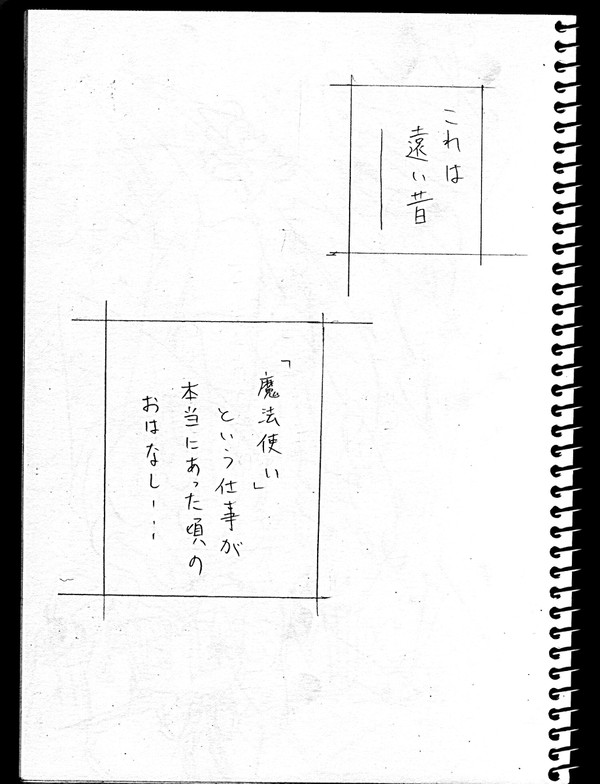 これは
遠い昔
「魔法使い」
という仕事が
本当にあった頃の
おはなし…